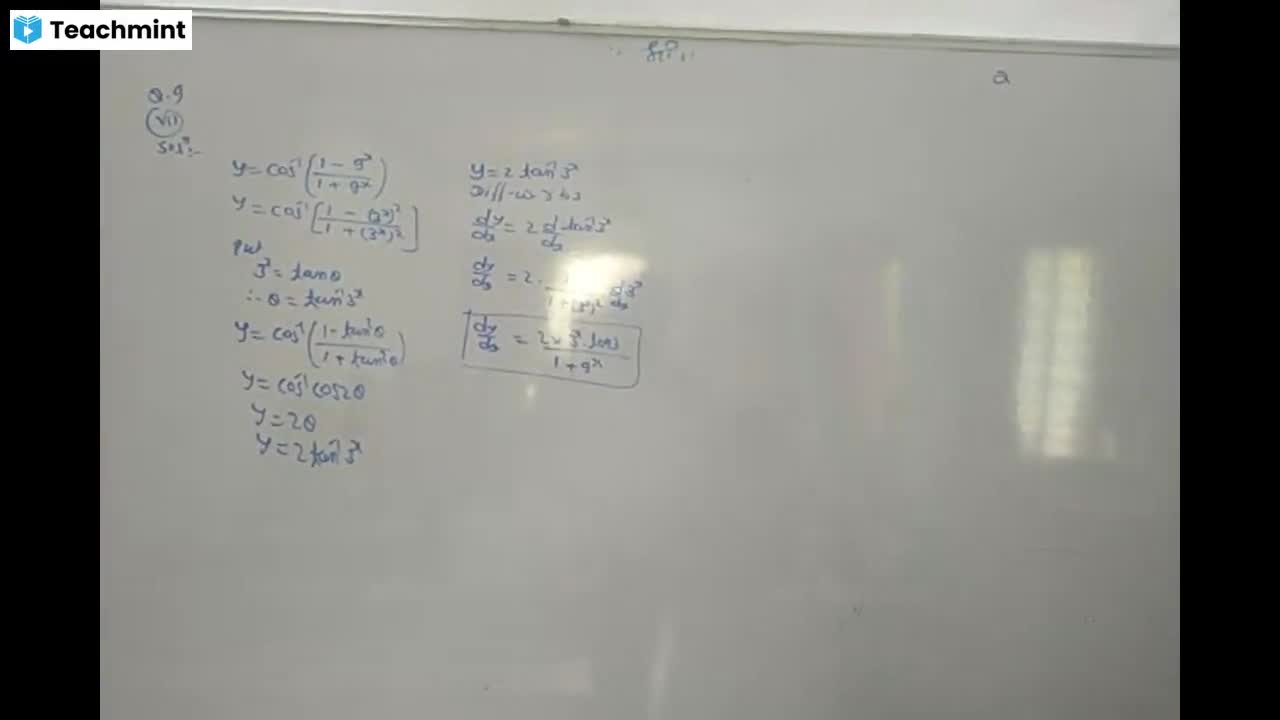 Teachmint
a
Q.9
(vii)
Solⁿ:-
y = cos⁻¹ (1 - 9ˣ / 1 + 9ˣ)
y = cos⁻¹ [1 - (3ˣ)² / 1 + (3ˣ)²]
Put
3ˣ = tanθ
∴ θ = tan⁻¹ 3ˣ
y = cos⁻¹ (1 - tan²θ / 1 + tan²θ)
y = cos⁻¹ cos2θ
y = 2θ
y = 2 tan⁻¹ 3ˣ
y = 2 tan⁻¹ 3ˣ
Diff. w.r.t. x
dy/dx = 2 d/dx tan⁻¹ 3ˣ
dy/dx = 2 · 1 / 1 + (3ˣ)² d/dx 3ˣ
dy/dx = 2 × 3ˣ · log3 / 1 + 9ˣ